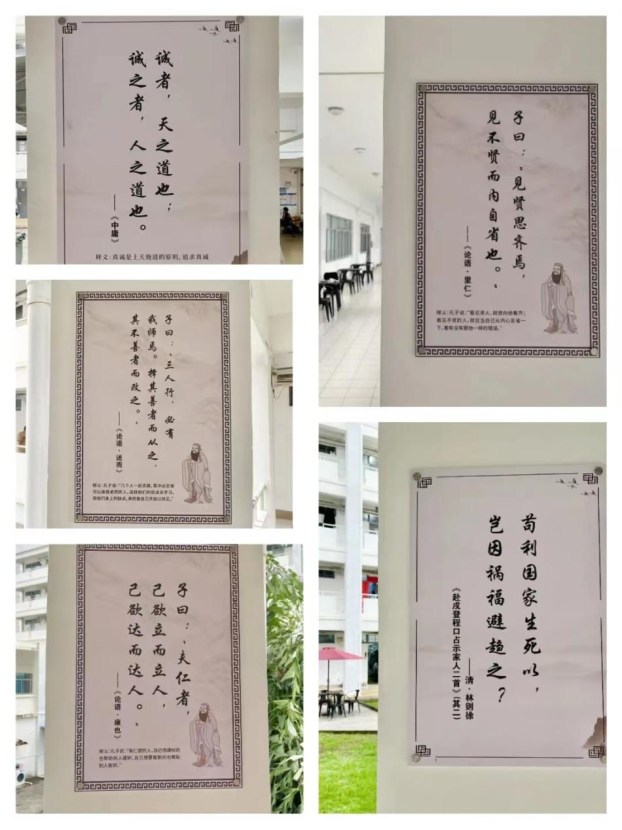 诚者，天之道也；
诚之者，人之道也。
——《中庸》
释义：真诚是上天他道的原则，追求真诚
子曰：、见贤思齐焉，
见不贤而内自省也。、
——《论语·里仁》
子曰：、三人行，必有
我师焉。择其善者而从之，
其不善者而改之。、
——《论语·述而》
子曰：、夫仁者，
己欲立而立人，
己欲达而达人。、
——《论语·雍也》
苟利国家生死以，
岂因祸福避趋之？
——清·林则徐
《赴戍登程口占示家人二首》（其二）